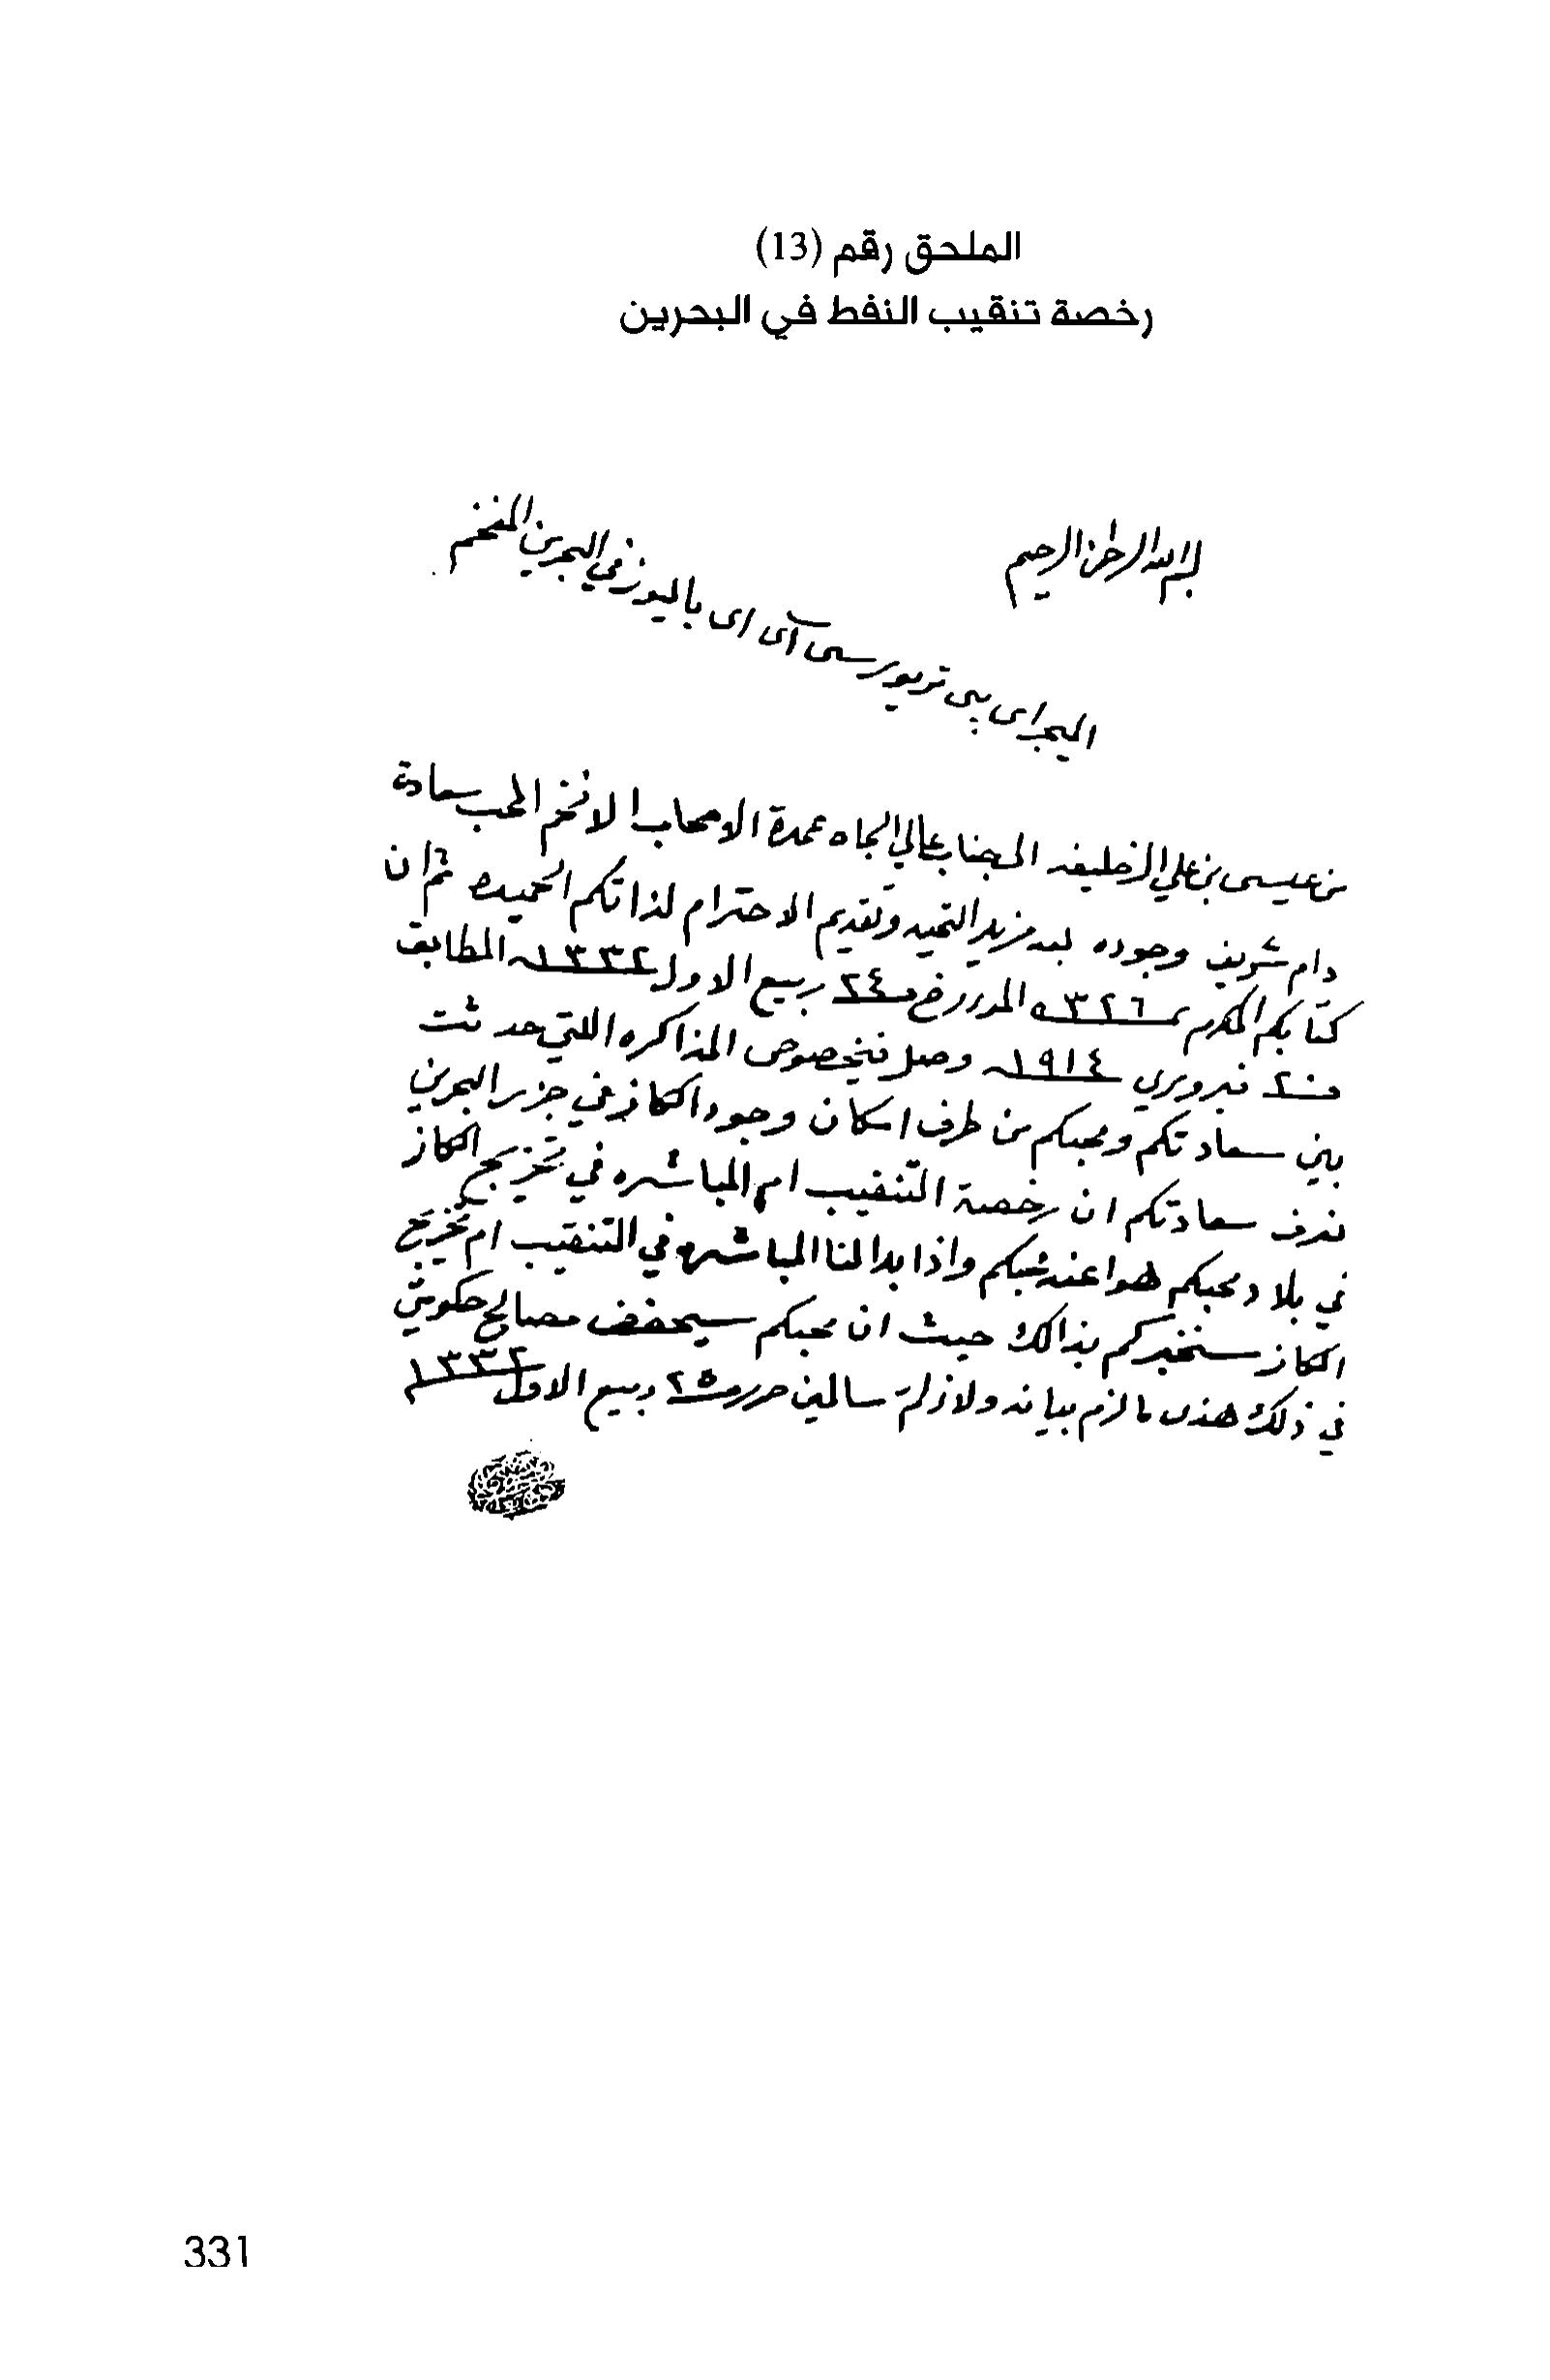 الملحق رقم (13)
رخصة تنقيب النفط في البحرين
بسم الله الرحمن الرحيم
الميجر اى پى تريور سى آى اى باليوز في البحرين المفخم
من عيسى بن علي الخليفه الى جناب عالي الجاه عمدة الاصحاب الافخم المحب سعادة
دام شريف وجوده بعد مزيد التحيه وتقديم الاحترام لذاتكم الحميده ثم ان
كتابكم المكرم ٣٢٦ المورخ ٢٤ ربيع الاول ١٣٣٢ المطابق
فبروري ١٩١٤ وصل فبخصوص المذاكره اللتي حدثت
بين سعادتكم ومحبكم من طرف امكان وجود الكاز في جزر البحرين
نعرف سعادتكم ان رخصة التنقيب ام المباشره في تخريج الكاز
في بلاد محبكم هوا عند محبكم واذا بدا لنا المباشره في التنقيب ام تخريج
الكاز سنخبركم بذالك حيث ان محبكم سيحفض مصالح حكومتي
في ذلك هذى مالزم بيانه ولازلتم سالمين حرر ٢٥ ربيع الاول ١٣٣٢
331